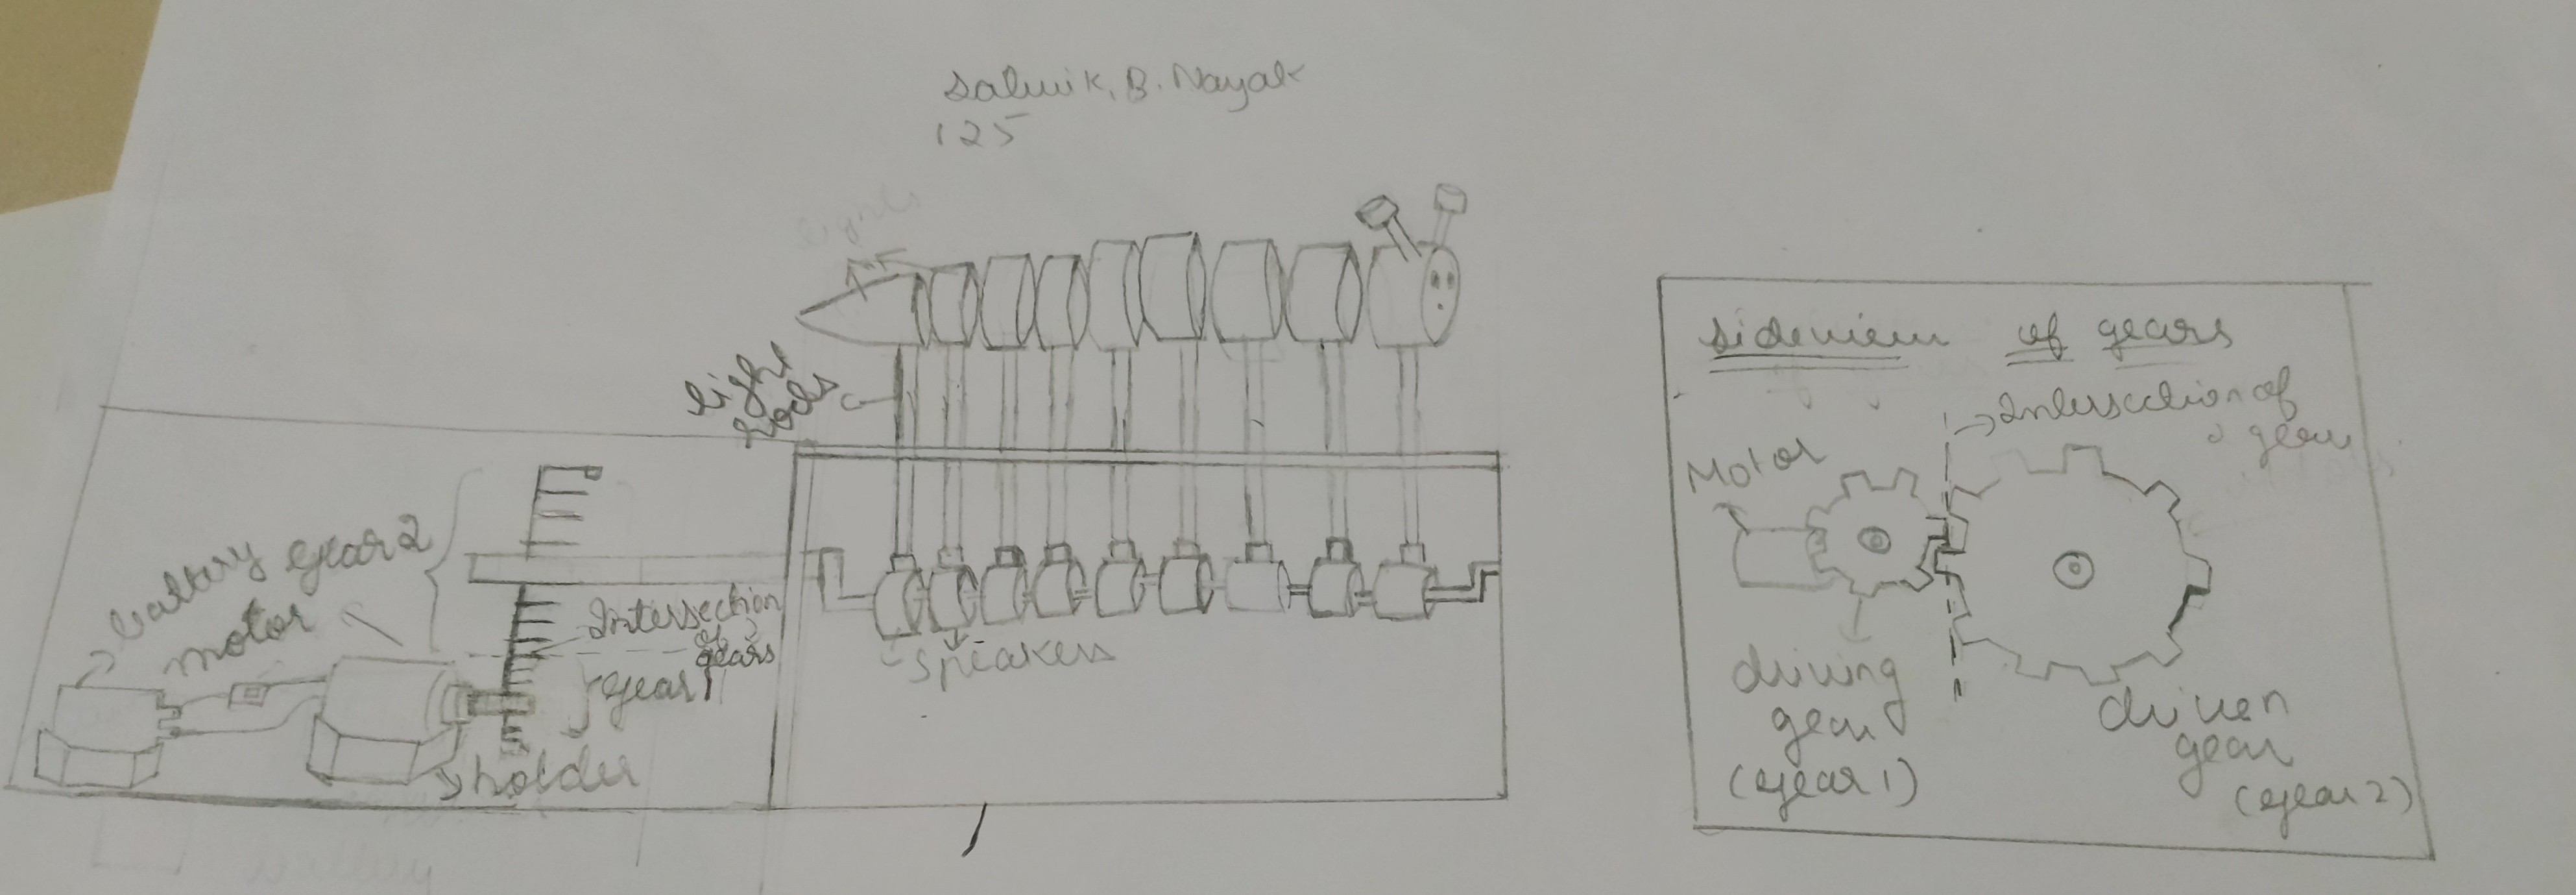 Satwik. B. Nayak
125
lights
light
rods
battery
gear 2
motor
Intersection
of 2
gears
gear 1
holder
speakers
battery
sideview of gears
Intersection of
2 gears
Motor
driving
gear
(gear 1)
driven
gear
(gear 2)